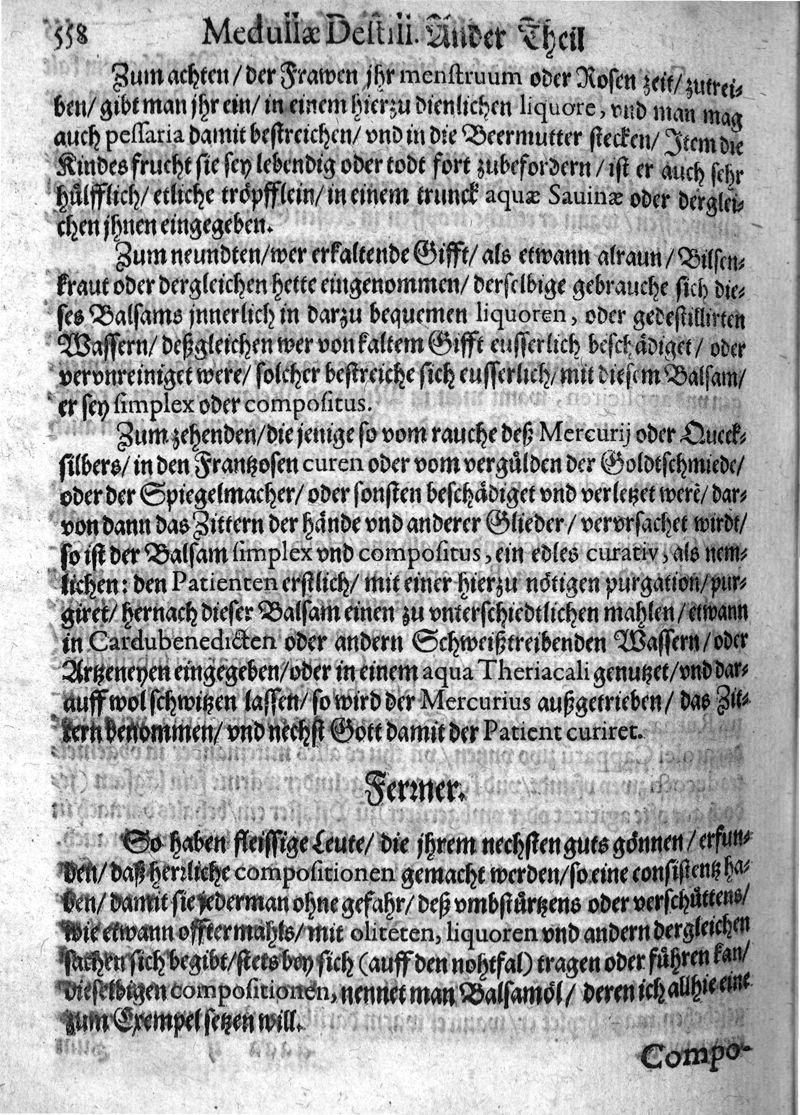 558 Medullæ Destill. Ander Theil
Zum achten/ der Frawen jhr menstruum oder Rosen zeit/ zutrei-
ben/ gibt man jhr ein/ in einem hierzu dienlichen liquore, vnd man mag
auch pessaria damit bestreichen/ vnd in die Beermutter stecken/ Item die
Kindes frucht sie sey lebendig oder todt fort zubefordern/ ist er auch sehr
hülfflich/ etliche tröpfflein/ in einem trunck aquæ Sauinæ oder derglei-
chen jhnen eingegeben.
Zum neundten/ wer erkaltende Gifft/ als etwann alraun/ Bilsen-
kraut oder dergleichen hette eingenommen/ derselbige gebrauche sich die-
ses Balsams jnnerlich in darzu bequemen liquoren, oder gedestillirten
Wassern/ deßgleichen wer von kaltem Gifft eusserlich beschädiget/ oder
vervnreiniget were/ solcher bestreiche sich eusserlich/ mit diesem Balsam/
er sey simplex oder compositus.
Zum zehenden/ die jenige so vom rauche deß Mercurij oder Queck-
silbers/ in den Frantzosen curen oder vom vergülden der Goldtschmiede/
oder der Spiegelmacher/ oder sonsten beschädiget vnd verletzet were/ dar-
von dann das Zittern der hände vnd anderer Glieder/ vervrsachet wirdt/
so ist der Balsam simplex vnd compositus, ein edles curativ, als nem-
lichen: den Patienten erstlich/ mit einer hierzu nötigen purgation/ pur-
giret/ hernach dieser Balsam einen zu vnterschiedtlichen mahlen/ etwann
in Cardubenedicten oder andern Schweißtreibenden Wassern/ oder
Artzeneyen eingegeben/ oder in einem aqua Theriacali genutzet/ vnd dar-
auff wol schwitzen lassen/ so wird der Mercurius außgetrieben/ das Zit-
tern benommen/ vnd nechst Gott damit der Patient curiret.
Ferner.
So haben fleissige Leute/ die jhrem nechsten guts gönnen/ erfun-
den/ daß herrliche compositionen gemacht werden/ so eine consistentz ha-
ben/ damit sie jederman ohne gefahr/ deß vmbstürtzens oder verschüttens/
wie etwann offtermahls/ mit oliteten, liquoren vnd andern dergleichen
sachen sich begibt/ stets bey sich (auff den nohtfal) tragen oder führen kan/
dieselbigen compositionen, nennet man Balsamöl/ deren ich allhie eine
zum Exempel setzen will.
Compo-